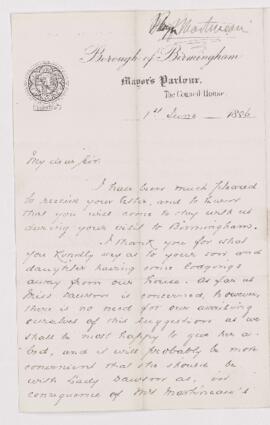 Martineau
Borough of Birmingham
Mayor's Parlour,
The Council House,
1st June 1886
My dear Sir,
I have been much pleased
to receive your letter, and to learn
that you will come to stay with us
during your visit to Birmingham.
I thank you for what
you kindly say as to your son, and
daughter having some lodgings
away from our house. As far as
Miss Dawson is concerned, however,
there is no need for our availing
ourselves of this suggestion as we
shall be most happy to give her a
bed, and it will probably be more
convenient that she should be
with Lady Dawson as, in
consequence of Mrs Martineau's